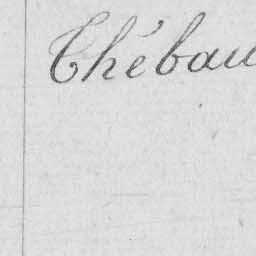 Thébau